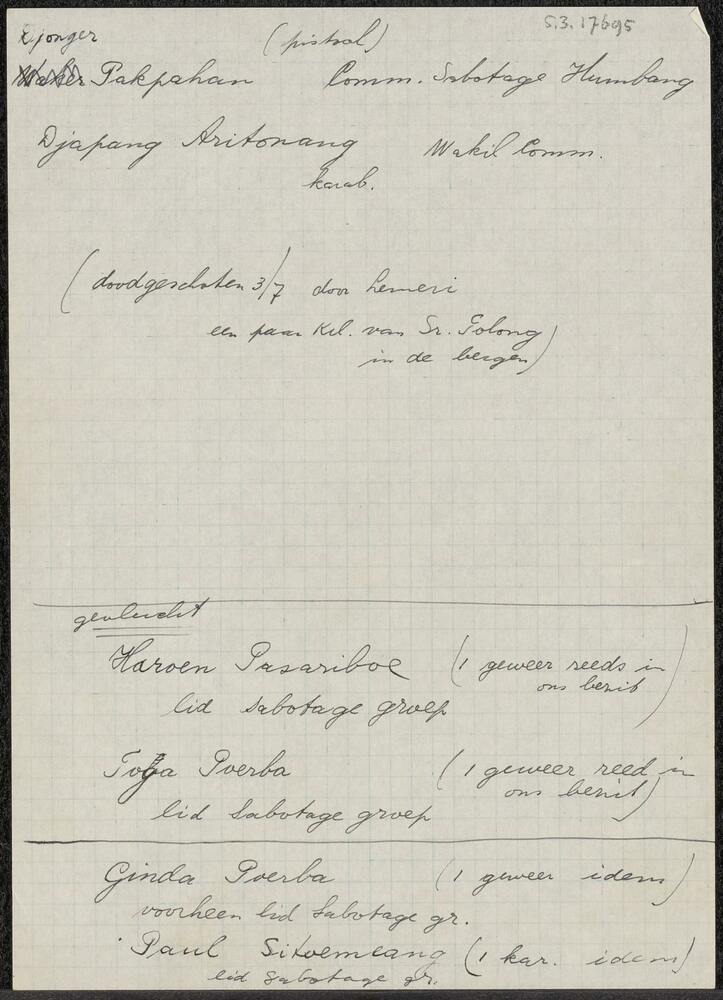 5.3.17695
Djonger (pistool)
Pakpahan Comm. Sabotage Humbang
Djapang Aritonang Wakil Comm.
karab.
(doodgeschoten 3/7 door
een paar Kil. van Sr. Golong
in de bergen)
gevlucht
Haroen Pasariboe (1 geweer reeds in
ons bezit)
lid sabotage groep
Toga Poerba (1 geweer reed in
ons bezit)
lid Sabotage groep
Ginda Poerba (1 geweer idem)
voorheen lid Sabotage gr.
Paul Sitoemeang (1 kar. idem)
lid Sabotage gr.